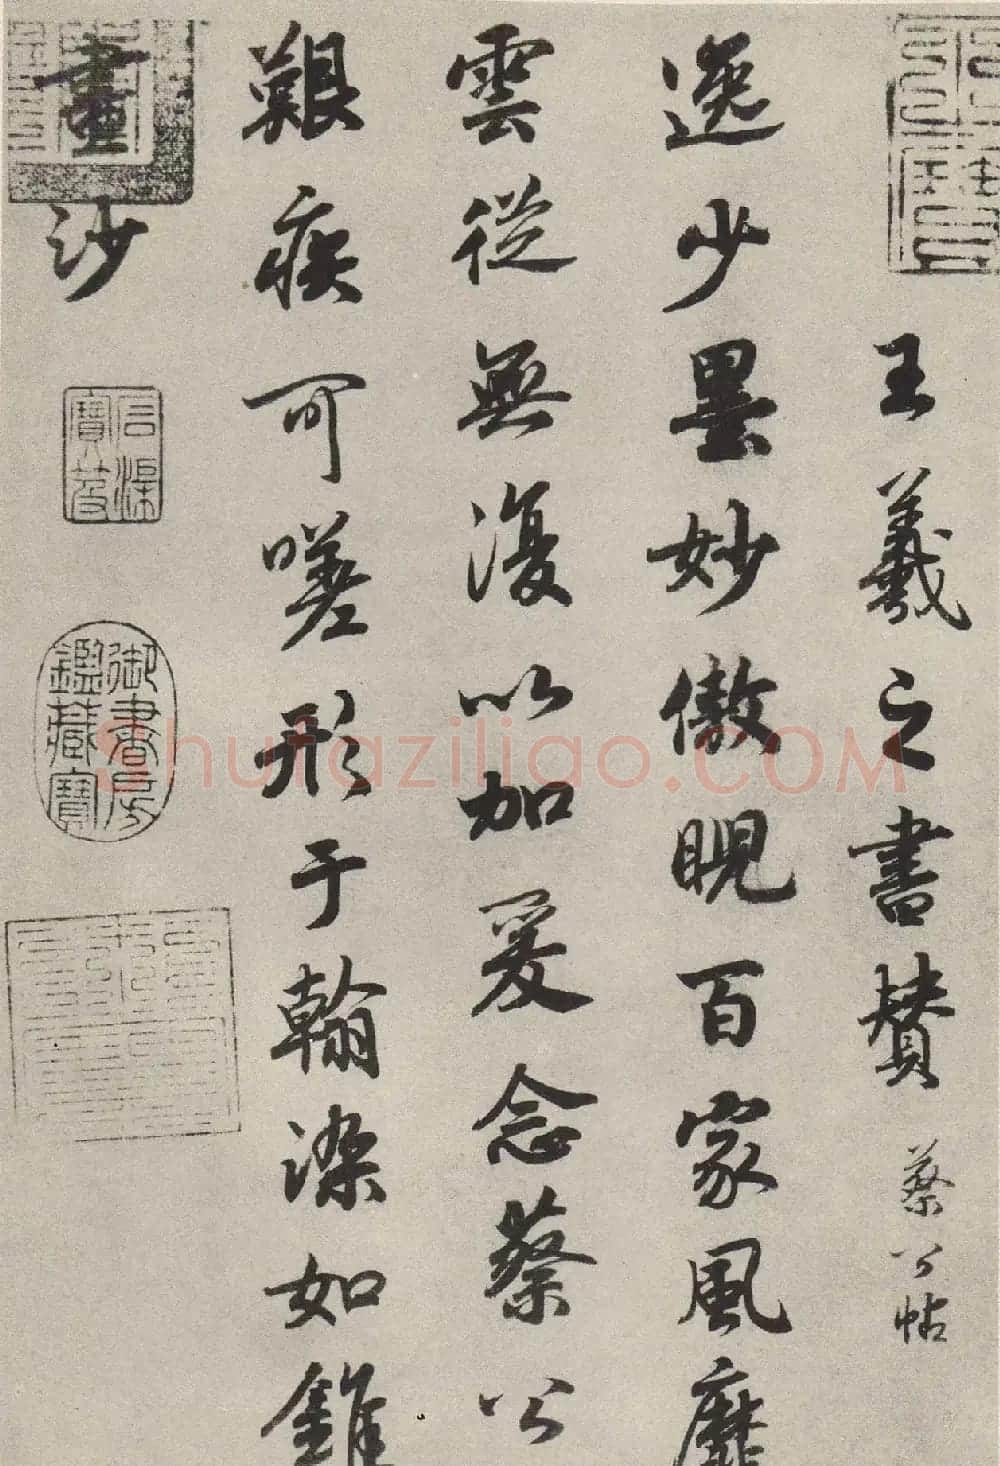 王羲之書賛 蔡公帖
逸少曇妙傲睨百家風靡
雲從無復以加爰念蔡公
艱疾可嗟形于翰染如錐
畫沙
御書房鑑藏寶
shufaziliao.COM